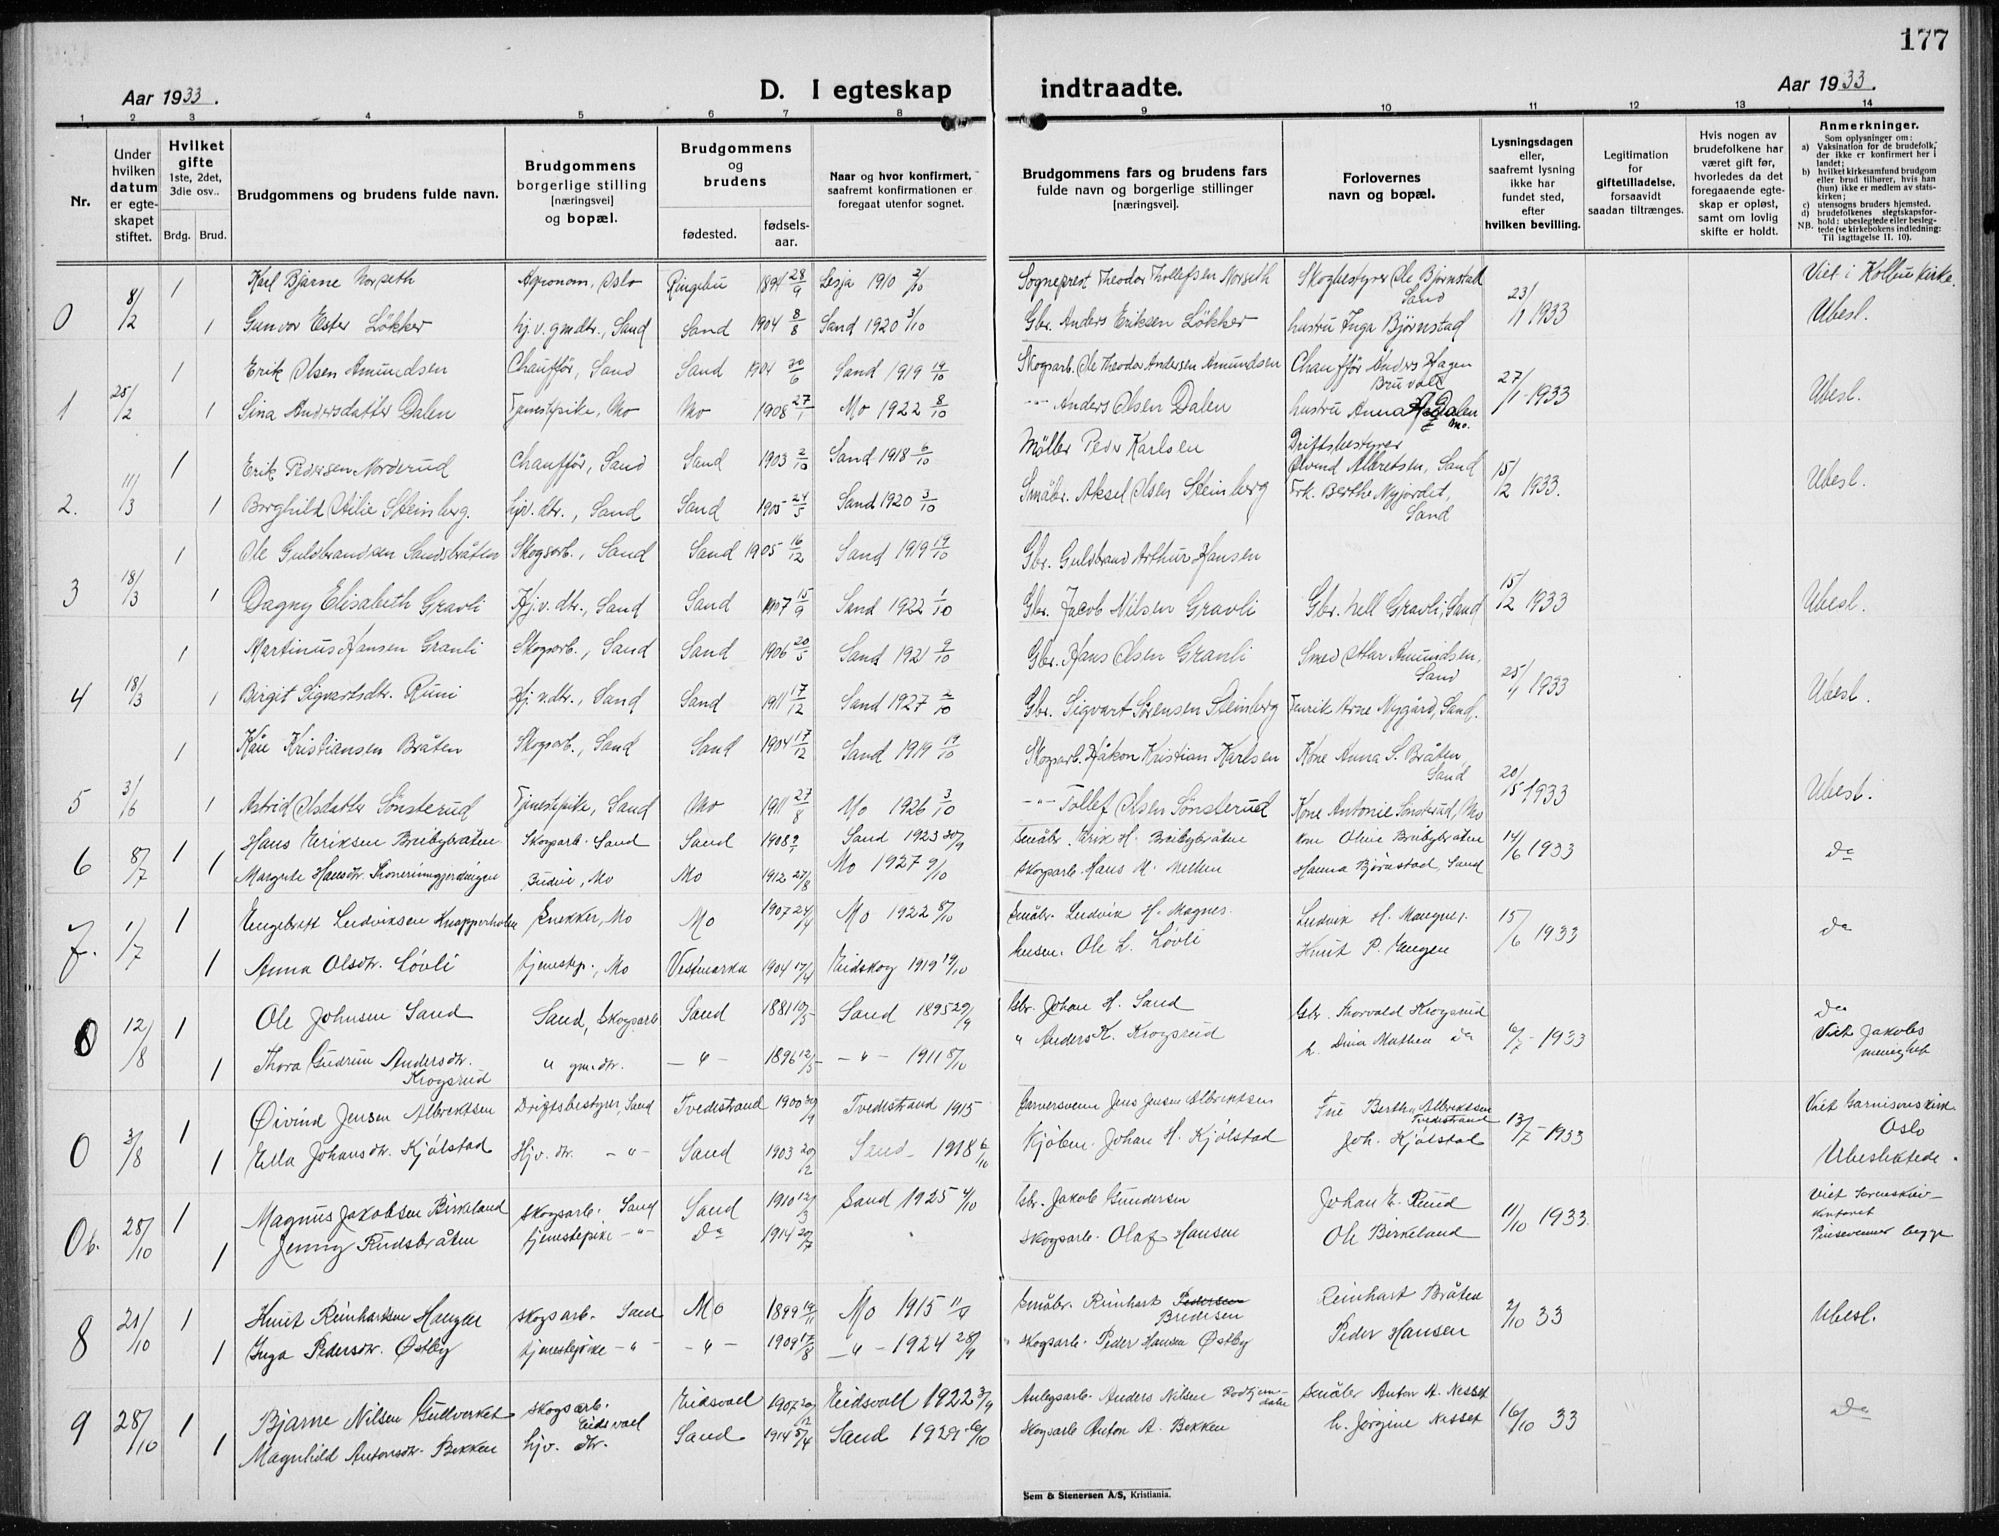 177
Aar 1933.
D. I egteskap indtraadte.
Aar 1933.
1 2 3 4 5 6 7 8 9 10 11 12 13 14
Nr.
Under hvilken datum er egteskapet stiftet.
Hvilket gifte 1ste, 2det, 3die osv..
Brdg. Brud.
Brudgommens og brudens fulde navn.
Brudgommens borgerlige stilling [næringsvei] og bopæl.
Brudgommens og brudens
fødested. fødselsaar.
Naar og hvor konfirmert, saafremt konfirmationen er foregaat utenfor sognet.
Brudgommens fars og brudens fars fulde navn og borgerlige stillinger [næringsvei].
Forlovernes navn og bopæl.
Lysningsdagen eller, saafremt lysning ikke har fundet sted, efter hvilken bevilling.
Legitimation for giftetilladelse, forsaavidt saadan tiltrænges.
Hvis nogen av brudefolkene har været gift før, hvorledes da det foregaaende egteskap er opløst, samt om lovlig skifte er holdt.
Anmerkninger.
Som oplysninger om:
a) Vaksination for de brudefolk, der ikke er konfirmert her i landet;
b) hvilket kirkesamfund brudgom eller brud tilhører, hvis han (hun) ikke er medlem av statskirken;
c) utensogns bruders hjemsted.
d) brudefolkenes slegtskapsforhold; ubeslegtede eller beslegtede (se kirkebokens indledning:
NB. Til iagttagelse II. 10).
0 8/2 1 Karl Bjarne Norseth Agronom, Oslo Ringebu 1894 28/9 Lesja 1910 2/10 Sogneprest Theodor Thollefsen Norseth Skogbestyrer Ole Bjørnstad Sand 23/1 1933 Viet i Kolbu kirke.
1 Gunvor Ester Løkker hj.v. gmdtr., Sand Sand 1904 8/8 Sand 1920 3/10 Gbr. Anders Eriksen Løkker hustru Inga Bjørnstad Ubesl.
1 25/2 1 Erik Olsen Amundsen Chauffør, Sand Sand 1904 20/6 Sand 1919 19/10 Skogsarb. Ole Theodor Andersen Amundsen Chauffør Anders Hagen Bruvoll 27/1 1933 Ubesl.
1 Sina Andersdatter Dalen Tjenestepike, Mo Mo 1908 27/1 Mo 1922 8/10 -"- Anders Olsen Dalen hustru Anna Dalen Mo.
2. 11/3 1 Erik Pedersen Norderud Chauffør, Sand Sand 1903 2/10 Sand 1918 6/10 Møller Peder Karlsen Driftsbestyrer Øivind Albretsen, Sand 15/2 1933. Ubesl.
1 Borghild Otilie Steinsberg. hjv. dtr., Sand Sand 1905 24/5 Sand 1920 3/10 Småbr. Aksel Olsen Steinsberg Frk. Berthe Nyjordet, Sand
3 18/3 1 Ole Guldbrandsen Sandsbråten Skogsarb., Sand Sand 1905 16/12 Sand 1919 19/10 Gbr. Guldbrand Arthur Hansen
1 Dagny Elisabeth Gravli Hj.v. dtr., Sand Sand 1907 15/9 Sand 1922 1/10 Gbr. Jacob Nilsen Gravli Gbr. Nell Gravli, Sand 15/2 1933 Ubesl.
4 18/3 1 Martinus Hansen Granli Skogsarb., Sand Sand 1906 20/5 Sand 1921 9/10 Gbr. Hans Olsen Granli Smed Olav Amundsen, Sand 25/1 1933 Ubesl.
1 Birgit Sigvartsdtr. Runi Hj.v.dtr., Sand Sand 1911 17/12 Sand 1927 2/10 Gbr. Sigvart Sørensen Steinsberg Fenrik Arne Nygård, Sand.
5 3/6 1 Kåre Kristiansen Bråten Skogsarb., Sand Sand 1904 17/12 Sand 1919 19/10 Skogsarb. Håkon Kristian Karlsen Kone Anna S. Bråten Sand 20/5 1933 Ubesl.
1 Astrid Olsdatter Sønsterud Tjenestepike, Sand Mo 1911 27/8 Mo 1926 3/10 -"- Tollef Olsen Sønsterud Kone Antonie Sønsterud, Mo
6 8/7 1 Hans Eriksen Breibybråten Skogsarb. Sand Sand 1908 Sand 1923 30/9 Småbr. Erik H. Breibybråten kone Oline Breibybråten 14/6 1933 do
1 Margrete Hansdtr. Budeie, Mo Mo 1912 27/8 Mo 1927 9/10 skogsarb. Hans M. Melken Hanna Bjørnstad, Sand
7. 1/7 1 Engebrett Ludviksen Knapperholen Snekker, Mo Mo 1907 24/4 Mo 1922 8/10 Småbr. Ludvik H. Magnes. Ludvik H. Mangnes. 15/6 1933 do
1 Anna Olsdtr. Løvli tjenestep., Mo Vestmarka 1904 17/4 Eidskog 1919 19/10 husm. Ole L. Løvli Knut P. Engen
0 12/8 1 Ole Johnsen Sand Sand, Skogsarb Sand 1881 10/5 Sand 1895 29/9 Gbr. Johan H. Sand Gbr. Thorvald Krogsrud 6/7 - 1933 do Viet Jakobs menighet
1 Thora Gudrun Andersdtr. Krogsrud " gm.dtr. -"- 1896 12/5 -"- 1911 8/10 " Anders K. Krogsrud h. Dina Mathea do
0 3/8 1 Øivind Jensen Albrektsen Driftsbestyrer, Sand Tvedestrand 1900 30/9 Tvedestrand 1915 Garversvenn Jens Jensen Albrektsen Frue Berthe Albrektsen Tvedestrand 13/7 - 1933 Viet Garnisonskirk Oslo
1 Ella Johansdtr. Kjølstad Hjv. dtr. -"- Sand 1903 20/2 Sand 1918 6/10 Kjøbm. Johan H. Kjølstad Joh. Kjølstad Ubeslektede.
0b. 28/10 1 Magnus Jakobsen Birkeland skogsarb. Sand Sand 1910 12/3 Sand 1925 4/10 Gbr. Jakob Gundersen Johan E. Ruud 11/10 1933. Viet Sorenskriv-kontoret
1 Jenny Rudsbråten tjenestepike -"- do 1914 20/7 skogsarb. Olaf Hansen Ole Birkeland Pinsevenner begge
8 21/10 1 Knut Reinhartsen Haugen skogsarb. Sand Mo 1899 19/11 Mo 1915 11/4 Småbr. Reinhart Pedersen Bredesen Reinhart Bråten 2/10 33 Ubesl.
1 Inga Pedersdtr. Østby tjenestepike -"- -"- 1909 17/8 -"- 1924 28/9 Skogsarb. Peder Hansen Østby Peder Hansen
9 28/10 1 Bjarne Nilsen Gullverket skogsarb. Eidsvoll Eidsvoll 1907 20/12 Eidsvoll 1922 3/9 Anlegsarb. Anders Nilsen Småbr Anton A. Nesset 16/10 33 do
1 Magnhild Antonsdtr. Bekken hjv. dtr. Sand 1914 5/4 Sand 1929 6/10 Skogsarb Anton A. Bekken h. Jørgine Nesset
Sem & Stenersen A/S, Kristiania.